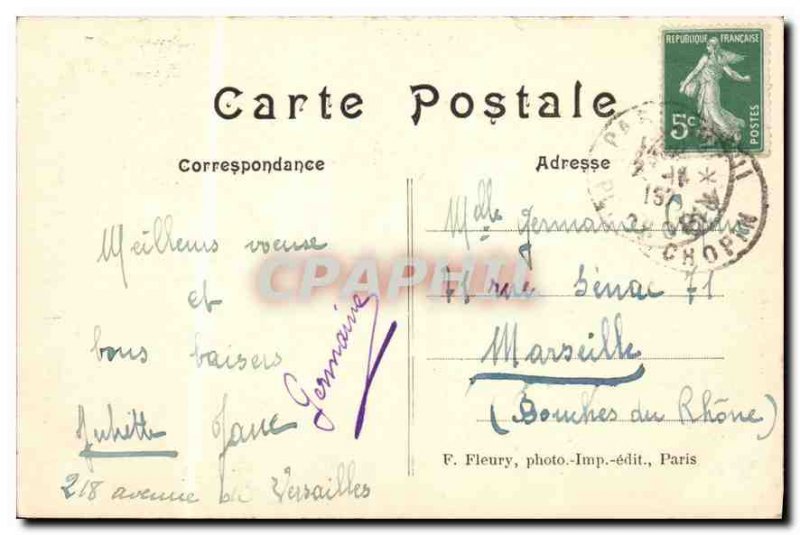 Carte Postale
Correspondance
Adresse
REPUBLIQUE FRANÇAISE
5c
POSTES
PARIS
CHOPIN
Meilleurs voeuse
et
bons baisers
Juliette Jane
218 avenue de Versailles
Germaine
Mdlle Germaine
71 rue Sénac 71
Marseille
(Bouches du Rhône)
F. Fleury, photo.-Imp.-édit., Paris
CPAPHIL